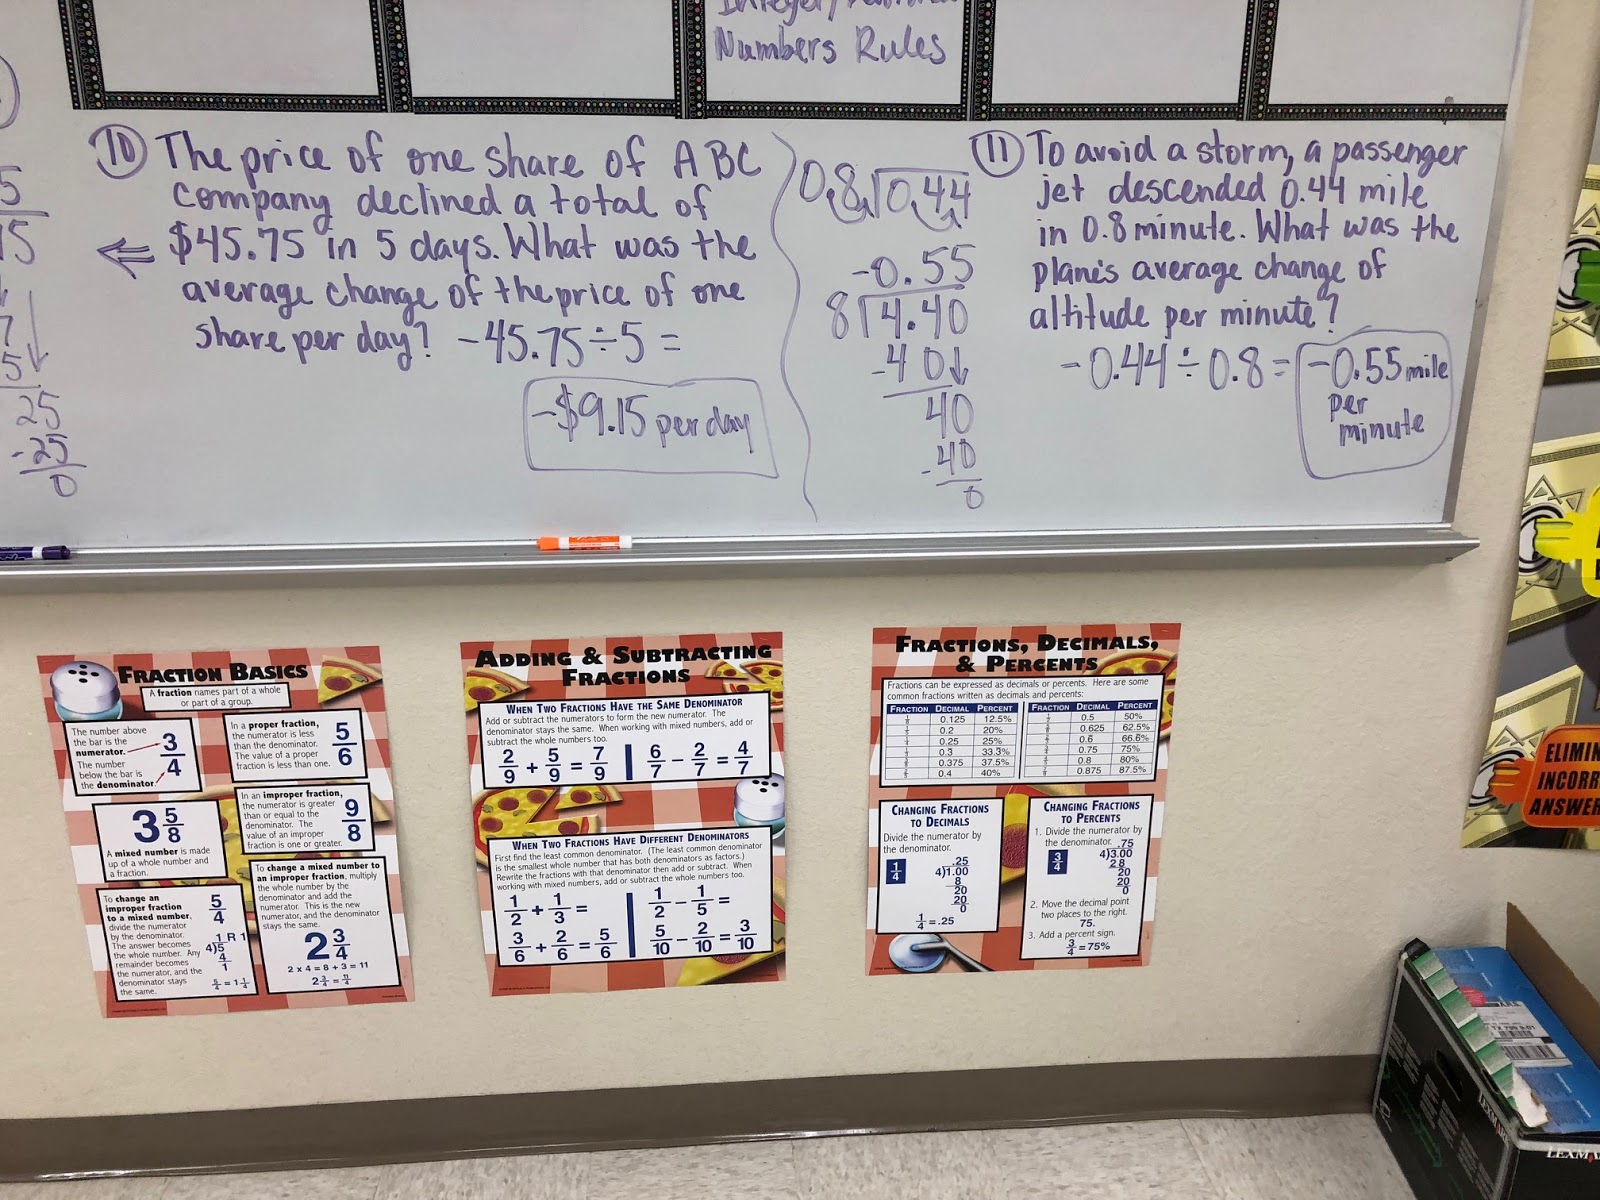 Numbers Rules
5
15
7
5
25
-25
0
10 The price of one share of ABC
company declined a total of
$45.75 in 5 days. What was the
average change of the price of one
share per day? -45.75 ÷ 5 =
-$9.15 per day
0.8 0.44
-0.55
8 4.40
-40
40
-40
0
11 To avoid a storm, a passenger
jet descended 0.44 mile
in 0.8 minute. What was the
plane's average change of
altitude per minute?
-0.44 ÷ 0.8 = -0.55 mile
per
minute
FRACTION BASICS
A fraction names part of a whole
or part of a group.
The number above
the bar is the
numerator.
The number
below the bar is
the denominator.
3/4
In a proper fraction,
the numerator is less
than the denominator.
The value of a proper
fraction is less than one.
5/6
3 5/8
A mixed number is made
up of a whole number and
a fraction.
In an improper fraction,
the numerator is greater
than or equal to the
denominator. The
value of an improper
fraction is one or greater.
9/8
To change an
improper fraction
to a mixed number,
divide the numerator
by the denominator.
The answer becomes
the whole number. Any
remainder becomes
the numerator, and the
denominator stays
the same.
5/4
1 R 1
4)5
4
1
5/4 = 1 1/4
To change a mixed number to
an improper fraction, multiply
the whole number by the
denominator and add the
numerator. This is the new
numerator, and the denominator
stays the same.
2 3/4
2 x 4 = 8 + 3 = 11
2 3/4 = 11/4
ADDING & SUBTRACTING
FRACTIONS
WHEN TWO FRACTIONS HAVE THE SAME DENOMINATOR
Add or subtract the numerators to form the new numerator. The
denominator stays the same. When working with mixed numbers, add or
subtract the whole numbers too.
2/9 + 5/9 = 7/9 | 6/7 - 2/7 = 4/7
WHEN TWO FRACTIONS HAVE DIFFERENT DENOMINATORS
First find the least common denominator. (The least common denominator
is the smallest whole number that has both denominators as factors.)
Rewrite the fractions with that denominator then add or subtract. When
working with mixed numbers, add or subtract the whole numbers too.
1/2 + 1/3 =
3/6 + 2/6 = 5/6
1/2 - 1/5 =
5/10 - 2/10 = 3/10
FRACTIONS, DECIMALS,
& PERCENTS
Fractions can be expressed as decimals or percents. Here are some
common fractions written as decimals and percents:
FRACTION DECIMAL PERCENT
0.125 12.5%
0.2 20%
0.25 25%
0.3 33.3%
0.375 37.5%
0.4 40%
FRACTION DECIMAL PERCENT
0.5 50%
0.625 62.5%
0.6 66.6%
0.75 75%
0.8 80%
0.875 87.5%
CHANGING FRACTIONS
TO DECIMALS
Divide the numerator by
the denominator.
1/4
.25
4)1.00
8
20
20
0
1/4 = .25
CHANGING FRACTIONS
TO PERCENTS
1. Divide the numerator by
the denominator.
3/4
.75
4)3.00
28
20
20
0
2. Move the decimal point
two places to the right.
75.
3. Add a percent sign.
3/4 = 75%
ELIMIN
INCORR
ANSWER
LEXMA